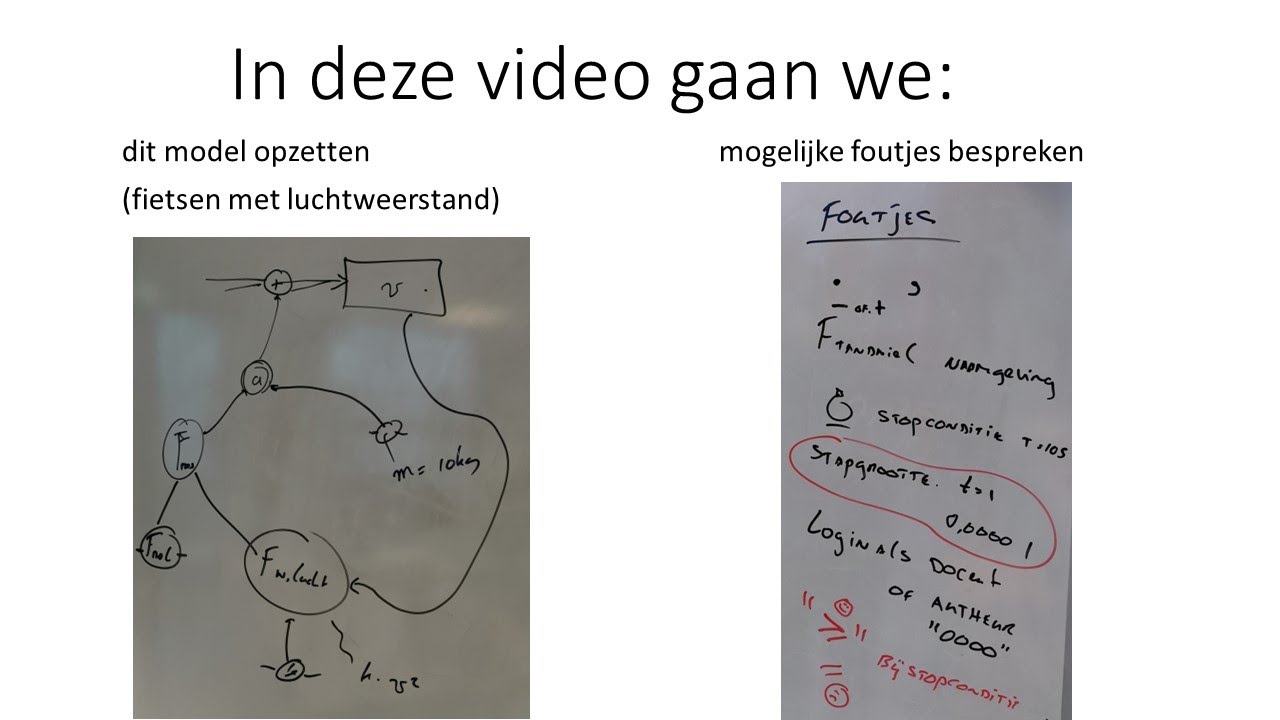 In deze video gaan we:
dit model opzetten
(fietsen met luchtweerstand)
mogelijke foutjes bespreken
+
v
a
m = 10kg
Fw,lucht
k
k. v²
FOUTJES
. ,
– OF. t
NAAMGEVING
STOPCONDITIE T=10S
STAPGROOTTE. t=1
0,00001
Login Als DOCENT
OF AUTHEUR
"0000"
"≥"
=
Bij STOPCONDITIE